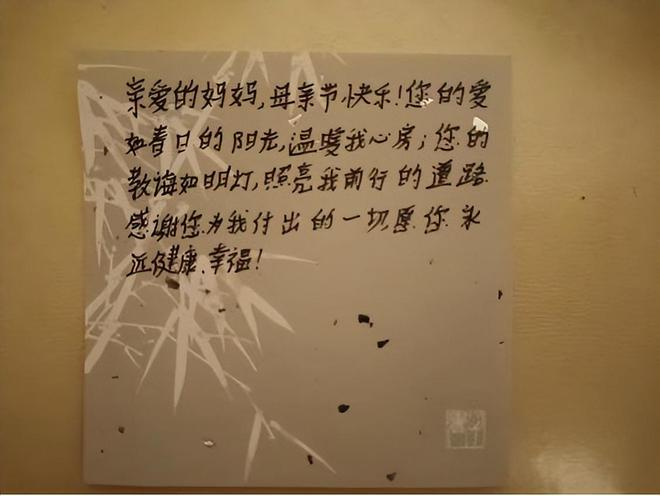 亲爱的妈妈,母亲节快乐!您的爱
如春日的阳光,温暖我心房;您的
教诲如明灯,照亮我前行的道路.
感谢您为我付出的一切愿你永
远健康、幸福!